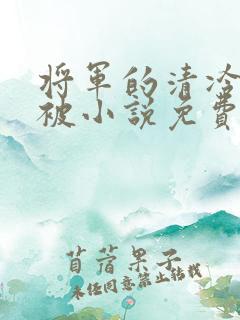 将军的清冷
被小说免費
苜蓿果子
未经同意禁止转载